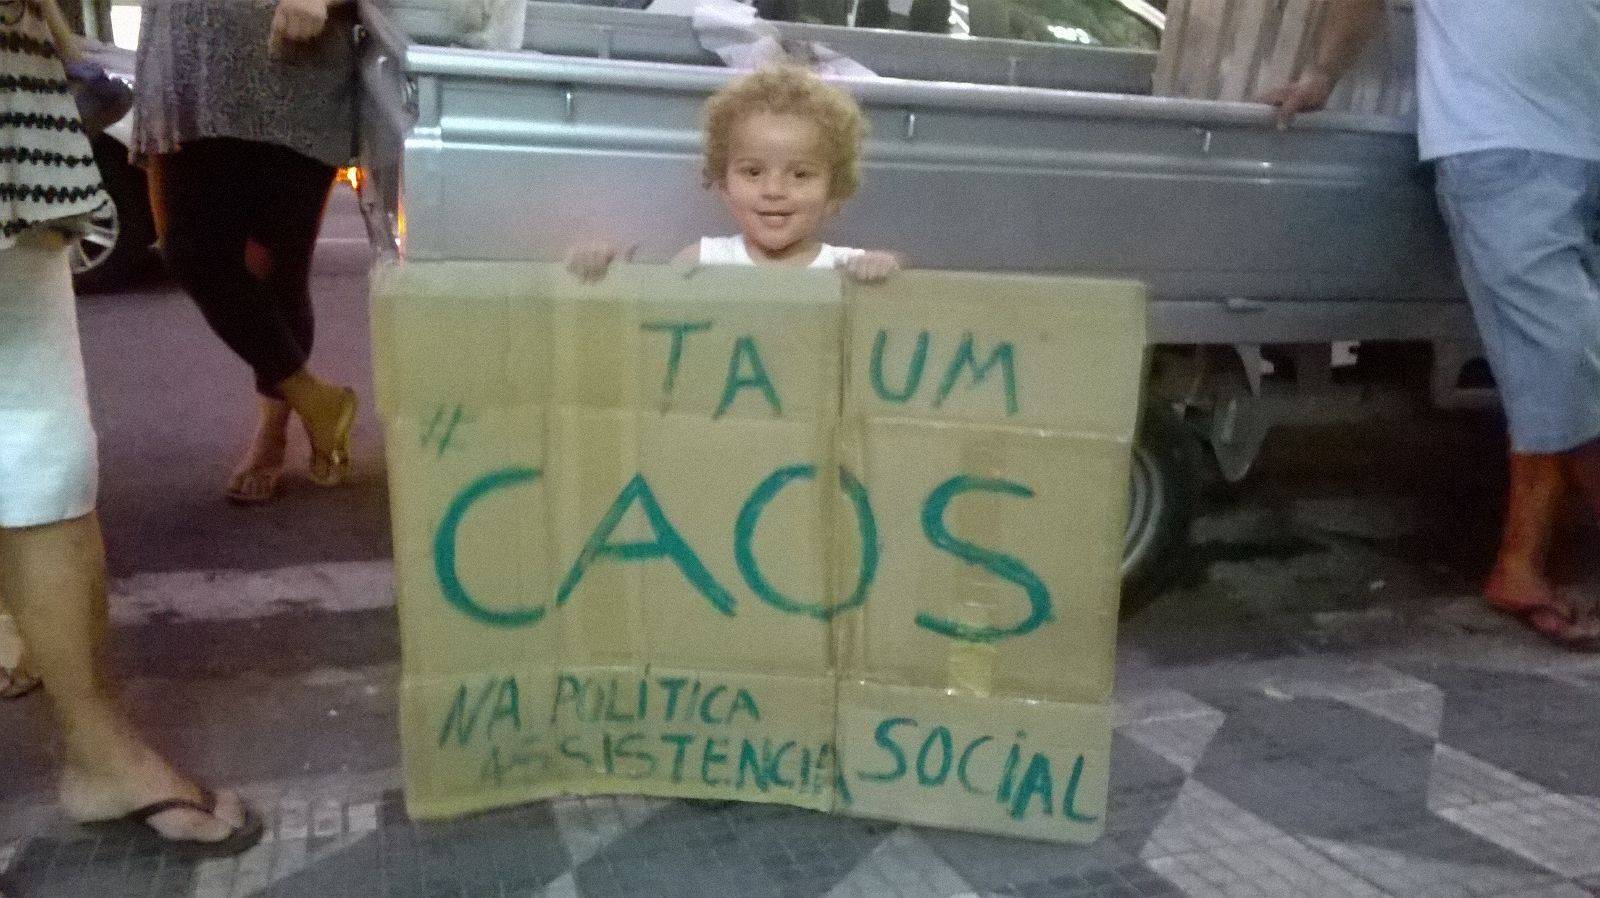 TA UM
# CAOS
NA POLÍTICA
ASSISTENCIA SOCIAL